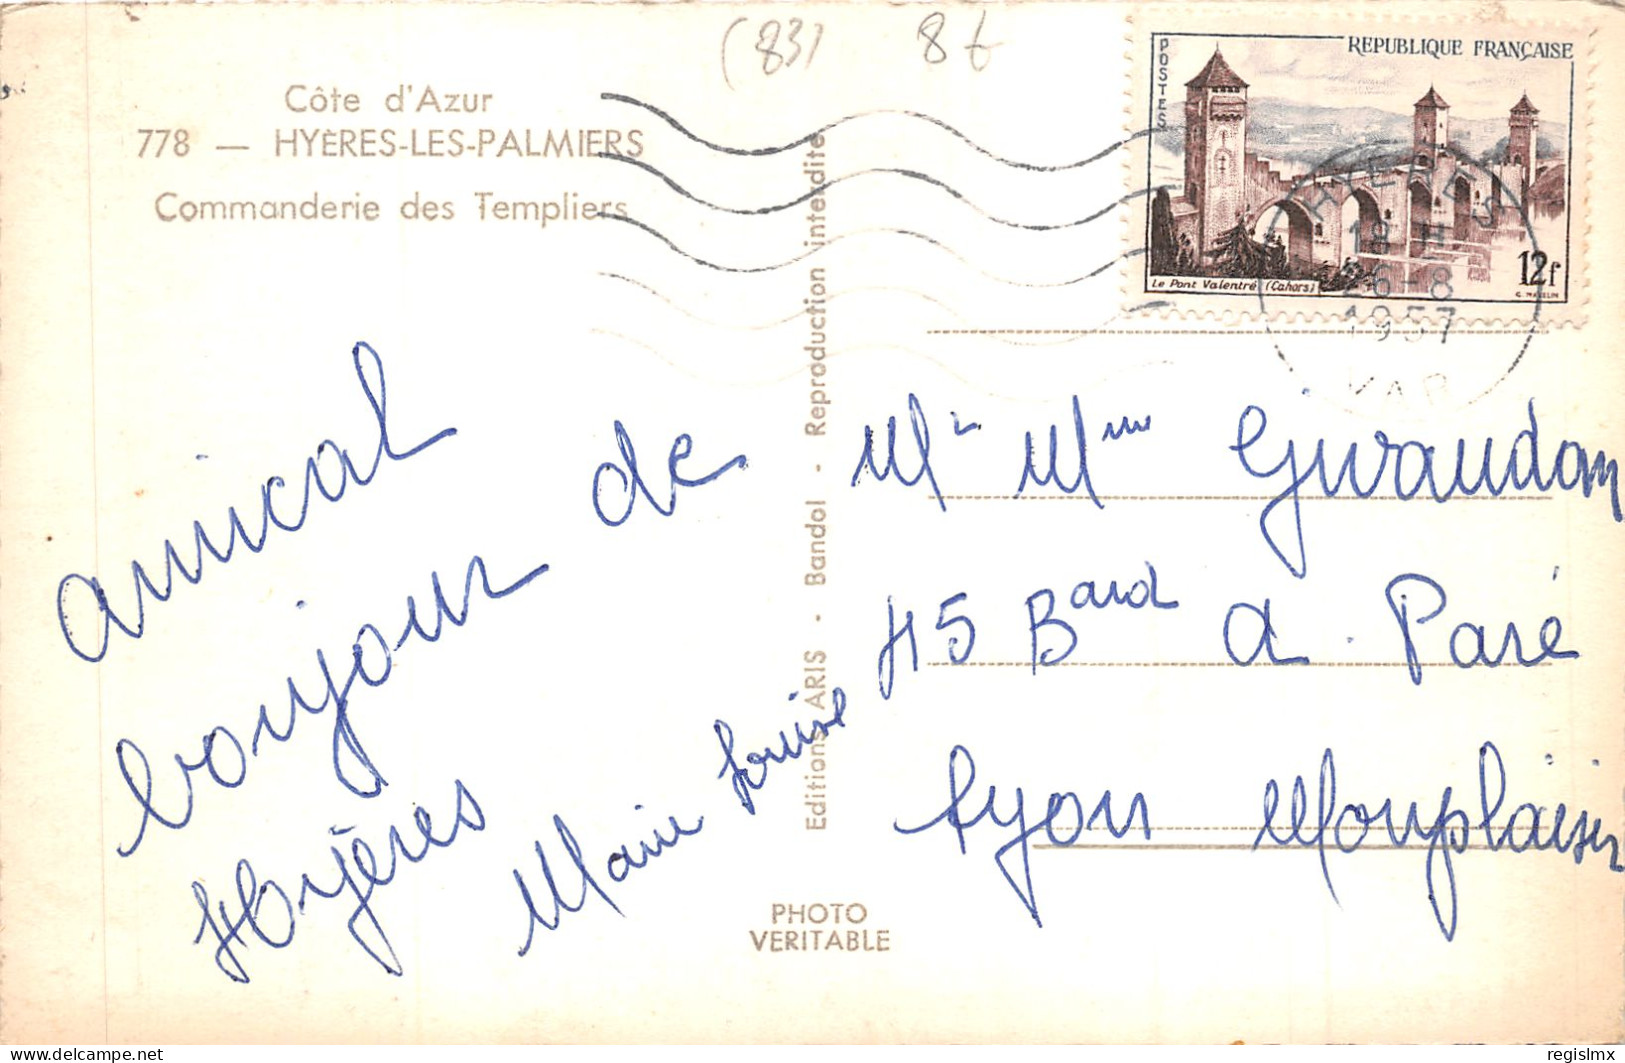 (83) 8 t
Côte d'Azur
778 — HYÈRES-LES-PALMIERS
Commanderie des Templiers
POSTES
REPUBLIQUE FRANÇAISE
Le Pont Valentré (Cahors)
12f
HYERES
18 H
26-8
1957
VAR
amical
bonjour de
Hyères
Marie Louise
Editions ARIS - Bandol - Reproduction interdite
Mr Mme Giraudon
45 Bard A. Paré
Lyon Monplaisir
PHOTO
VERITABLE
delcampe.net
regislmx